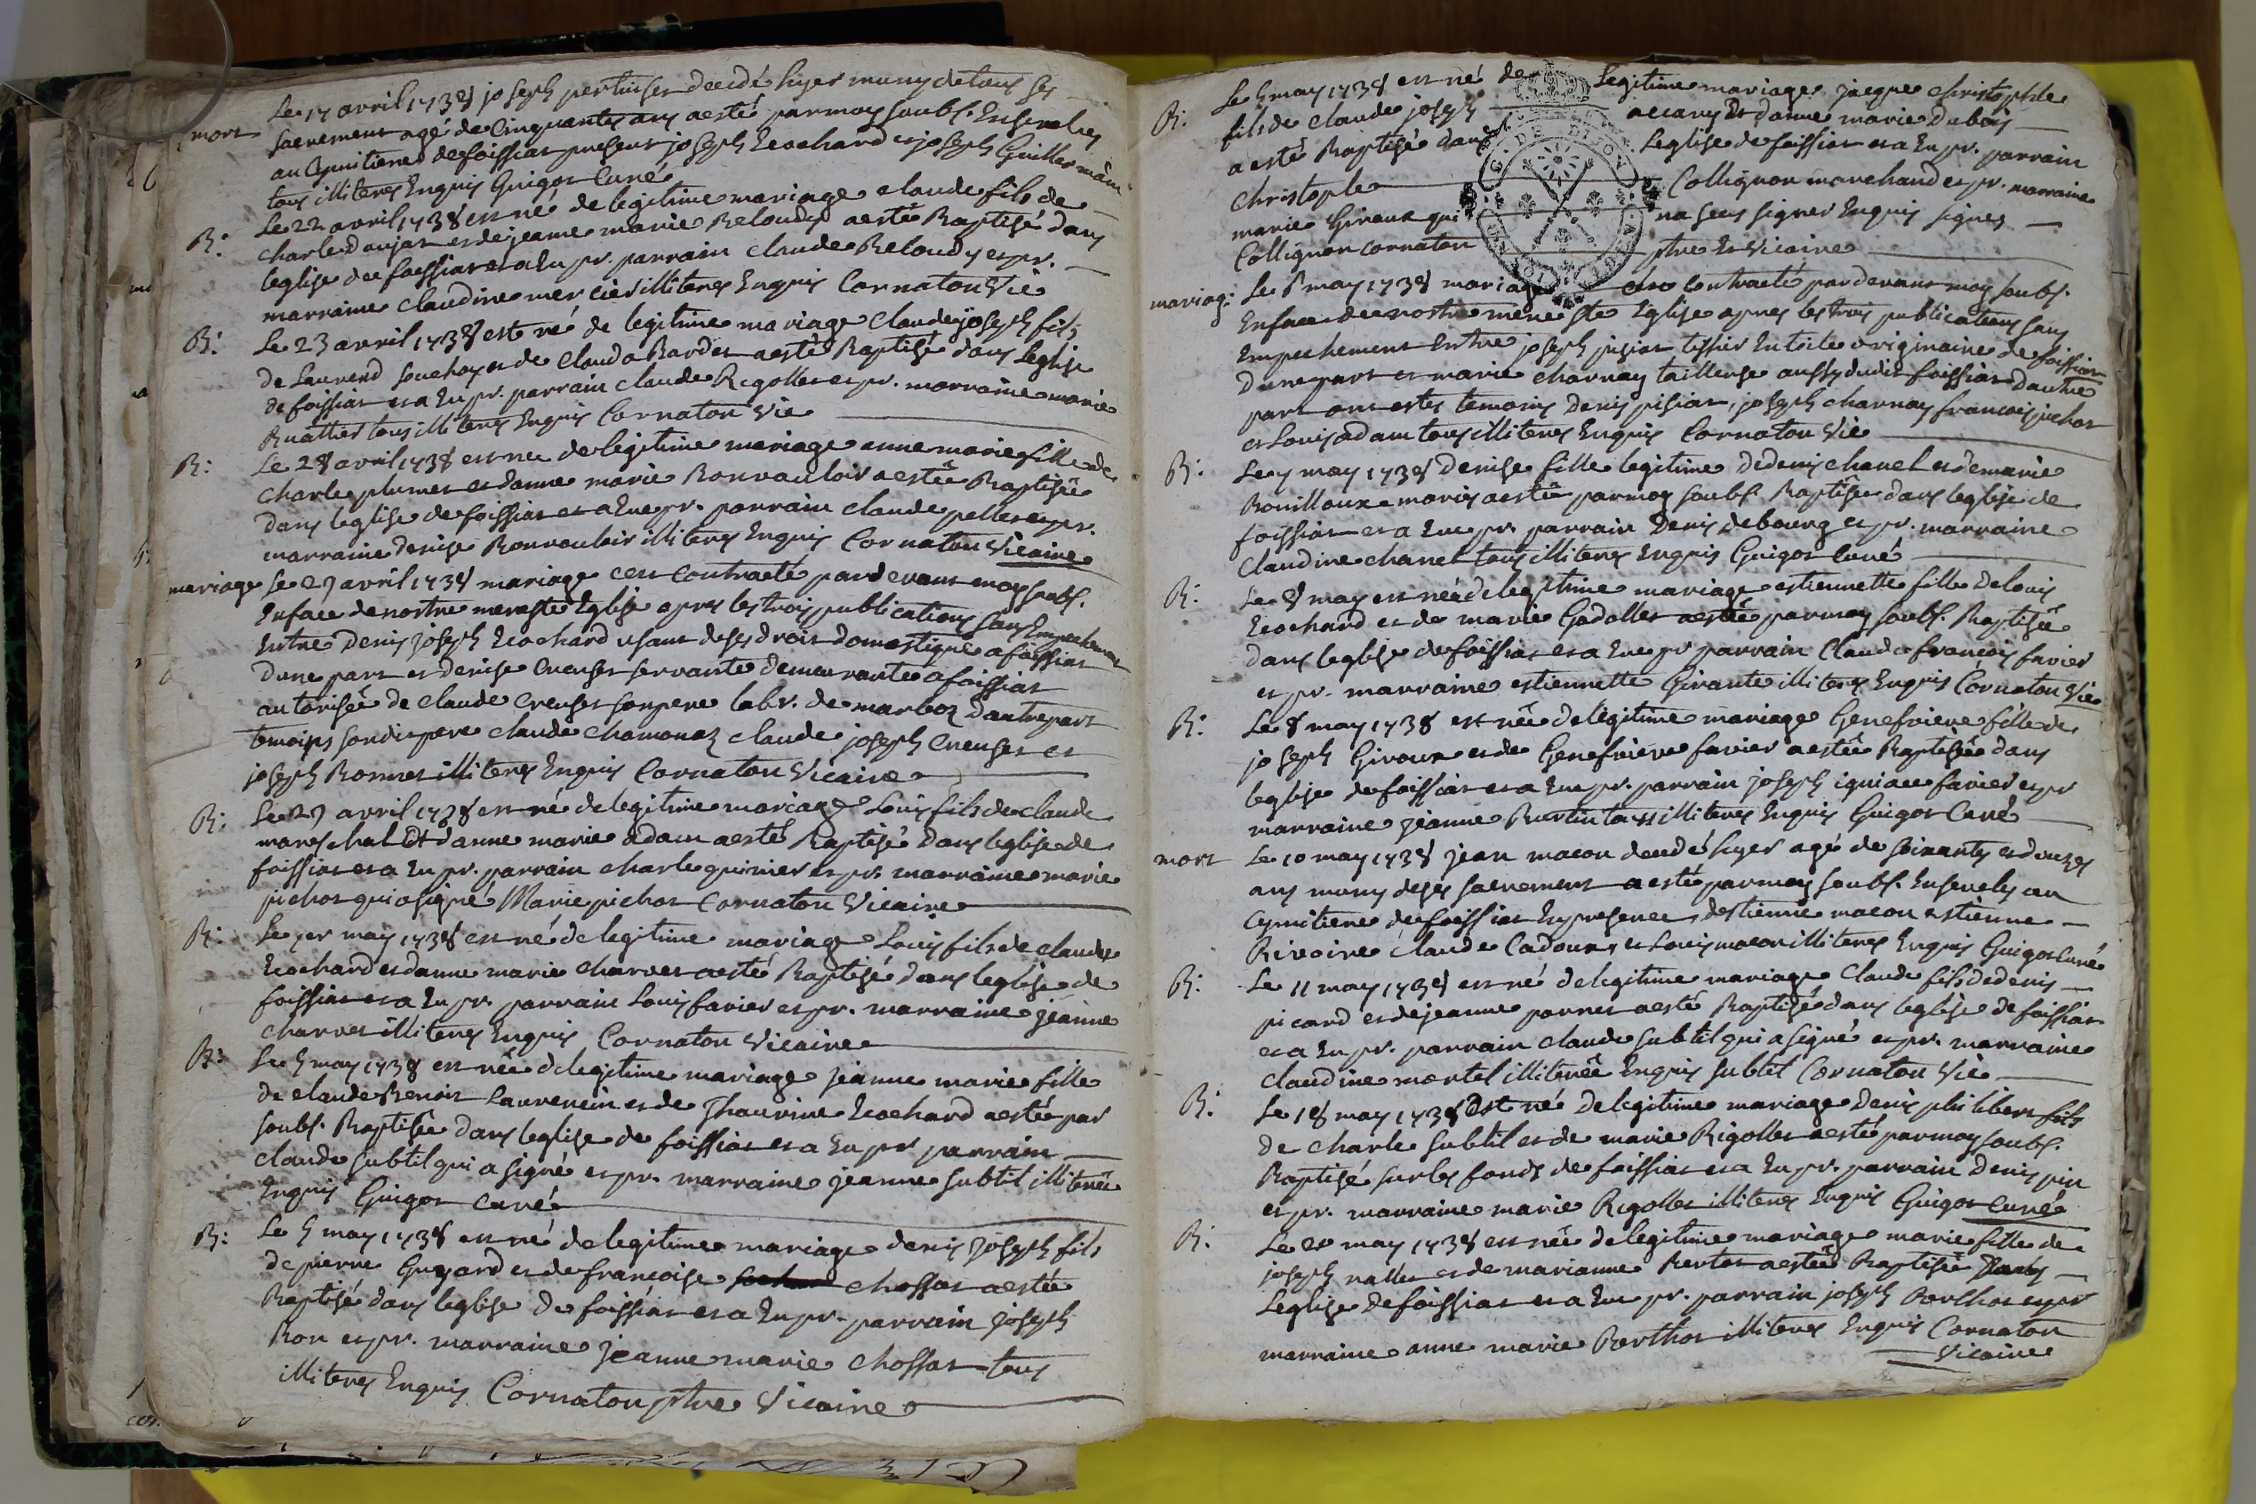 Le 17 avril 1738 joseph pertuiset decedé hyer muny de tous ses
mort sacrement agé de Cinquante ans a esté par moy soubs. Ensevely
au Cymitiere de foissiat presens joseph Ecochard et joseph Guillerm
tous illiteres Enquis Guigot Curé
B: Le 22 avril 1738 est né de legitime mariage claude fils de
charle Danjat et de jeanne marie Beloudy a esté Baptisé dans
leglise de foissiat et a Eu pr. parrain claude Beloudy et pr.
marraine claudine mercier illiteres Enquis Cornaton Vic
B: Le 23 avril 1738 est né de legitime mariage Claude joseph fils
de Laurend souchoy et de Clauda Bardet a esté Baptisé dans Leglise
de foissiat et a Eu pr. parrain claude Rigollet et pr. marraine marie
Buathier tous illiteres Enquis Cornaton Vic
B: Le 28 avril 1738 est née de legitime mariage anne marie fille de
charle plumet et danne marie Bonvouloir a estée Baptisée
dans leglise de foissiat et a Eue pr. parrain claude pellet et pr.
marraine denise Bonvouloir illiteres Enquis Cornaton Vicaire
mariage Le 29 avril 1738 mariage cest Contracté pardevant moy soubs.
En face de nostre mere ste Eglise apres les trois publications sans Empechement
Entre Denis joseph Ecochard usant de ses droit domestique a foissiat
dune part et denise Creuset servante demeurante a foissiat
autorisée de claude Creuset son pere labr. de marboz dautre part
temoins son dit pere claude Chamonaz claude joseph Creuset et
joseph Bonnet illiteres Enquis Cornaton Vicaire
B: Le 29 avril 1738 est né de legitime mariage Louis fils de Claude
mareschal Et danne marie adam a esté Baptisé dans leglise de
foissiat et a Eu pr. parrain charle quinier et pr. marraine marie
pichot qui a signé Marie pichot Cornaton Vicaire
B: Le 1er may 1738 est né de legitime mariage Louis fils de claude
Ecochard et danne marie Charvet a esté Baptisé dans leglise de
foissiat et a Eu pr. parrain Louis favier et pr. marraine jeanne
charvet illiteres Enquis Cornaton Vicaire
B: Le 5 may 1738 est née de legitime mariage jeanne marie fille
de claude Benoit Laurencin et de Thaurine Ecochard a estée par
soubs. Baptisée dans leglise de foissiat et a Eu pr parrain
claude subtil qui a signé et pr. marraine jeanne subtil illiterée
Enquis Guigot curé
B: Le 5 may 1738 est né de legitime mariage denis joseph fils
de pierre Guyard et de francoise chossat a esté
Baptisé dans leglise de foissiat et a Eu pr. parrain joseph
Bon et pr. marraine jeanne marie chossat tous
illiteres Enquis Cornaton ptre Vicaire
B: Le 5 may 1738 est né de Legitime mariage jacque christophle
fils de claude joseph accary Et danne marie Dubois
a esté Baptisé dans Leglise de foissiat et a Eu pr. parrain
Christophle Collignon marchand et pr. marraine
marie Giroux qui na sceu signer Enquis signes
Collignon Cornaton ptre Et Vicaire
mariag: Le 6 may 1738 mariage cest Contracté pardevant moy soubs.
En face de nostre mere ste Eglise apres les trois publications sans
Empechement Entre joseph pisiat tissier En toile originaire de foissiat
Dune part et marie charnay tailleuse aussy dudit foissiat Dautre
part ont estes temoins Denis pisiat, joseph charnay francois pichot
et Louis adam tous illiteres Enquis Cornaton Vic
B: Le 7 may 1738 denise fille legitime de denis chanel et de marie
Bouilloux maries a estée par moy soubs. Baptisée dans leglise de
foissiat et a Eue pr. parrain Denis debourg et pr. marraine
Claudine chanel tous illiteres Enquis Guigot Curé
B: Le 8 may est née de legitime mariage estiennette fille de louis
Ecochard et de marie Gadollet a estée par moy soubs. Baptisée
dans leglise de foissiat et a Eue pr parrain Claude francois favier
et pr. marraine estiennette Girante illiteres Enquis Cornaton Vic
B: Le 8 may 1738 est née de legitime mariage Genefvieve fille de
joseph Giroux et de Genefvieve favier a estée Baptisée dans
leglise de foissiat et a Eue pr. parrain joseph igniace favier et pr
marraine jeanne illiteres Enquis Guigot Curé
mort Le 10 may 1738 jean macon decedé hyer agé de soixante et douze
ans muny de ses sacrement a esté par moy soubs. Ensevely au
Cymitiere de foissiat En presence destienne macon estienne
Rivoire claude Cadoux et Louis macon illiteres Enquis Guigot Curé
B: Le 11 may 1738 est né de legitime mariage Claude fils de denis
picard et de jeanne ponnet a esté Baptisé dans leglise de foissiat
et a Eu pr. parrain claude subtil qui a signé et pr. marraine
claudine mortel illiterée Enquis subtil Cornaton Vic
B: Le 18 may 1738 Est né de legitime mariage Denis philibert fils
de charle subtil et de marie Rigollet a esté par moy soubs.
Baptisé sur les fonds de foissiat et a Eu pr. parrain Denis pin
et pr. marraine marie Rigollet illiteres Enquis Guigot Curé
B: Le 20 may 1738 est née de legitime mariage marie fille de
joseph nallet et de marianne Rentet a estée Baptisée Dans
Leglise de foissiat et a Eue pr. parrain joseph Berthot et pr
marraine anne marie Berthot illiteres Enquis Cornaton
Vicaire